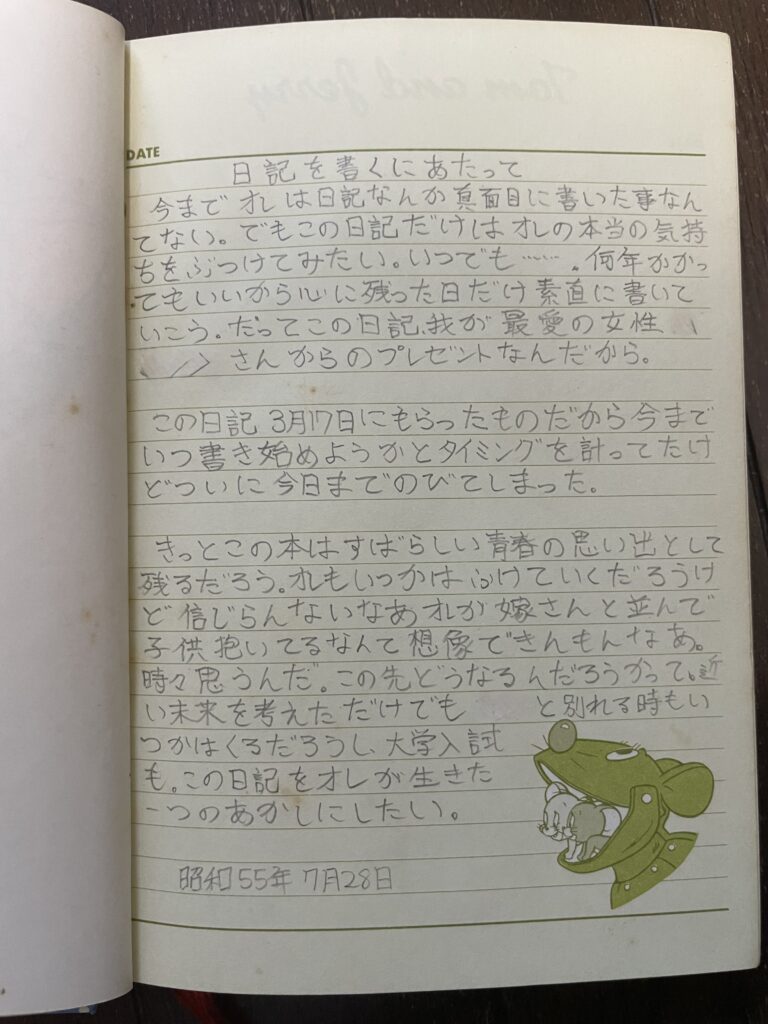 Tom and Jerry
DATE
日記を書くにあたって
今までオレは日記なんか真面目に書いた事なん
てない。でもこの日記だけはオレの本当の気持
ちをぶつけてみたい。いつでも……。何年かかっ
てもいいから心に残った日だけ素直に書いて
いこう。だってこの日記、我が最愛の女性
さんからのプレゼントなんだから。
この日記3月17日にもらったものだから今まで
いつ書き始めようかとタイミングを計ってたけ
どついに今日までのびてしまった。
きっとこの本はすばらしい青春の思い出として
残るだろう。オレもいつかはふけていくだろうけ
ど信じらんないなあオレが嫁さんと並んで
子供抱いてるなんて想像できんもんなあ。
時々思うんだ。この先どうなるんだろうかって。近
い未来を考えただけでも と別れる時もい
つかはくるだろうし、大学入試
も。この日記をオレが生きた
一つのあかしにしたい。
昭和55年7月28日